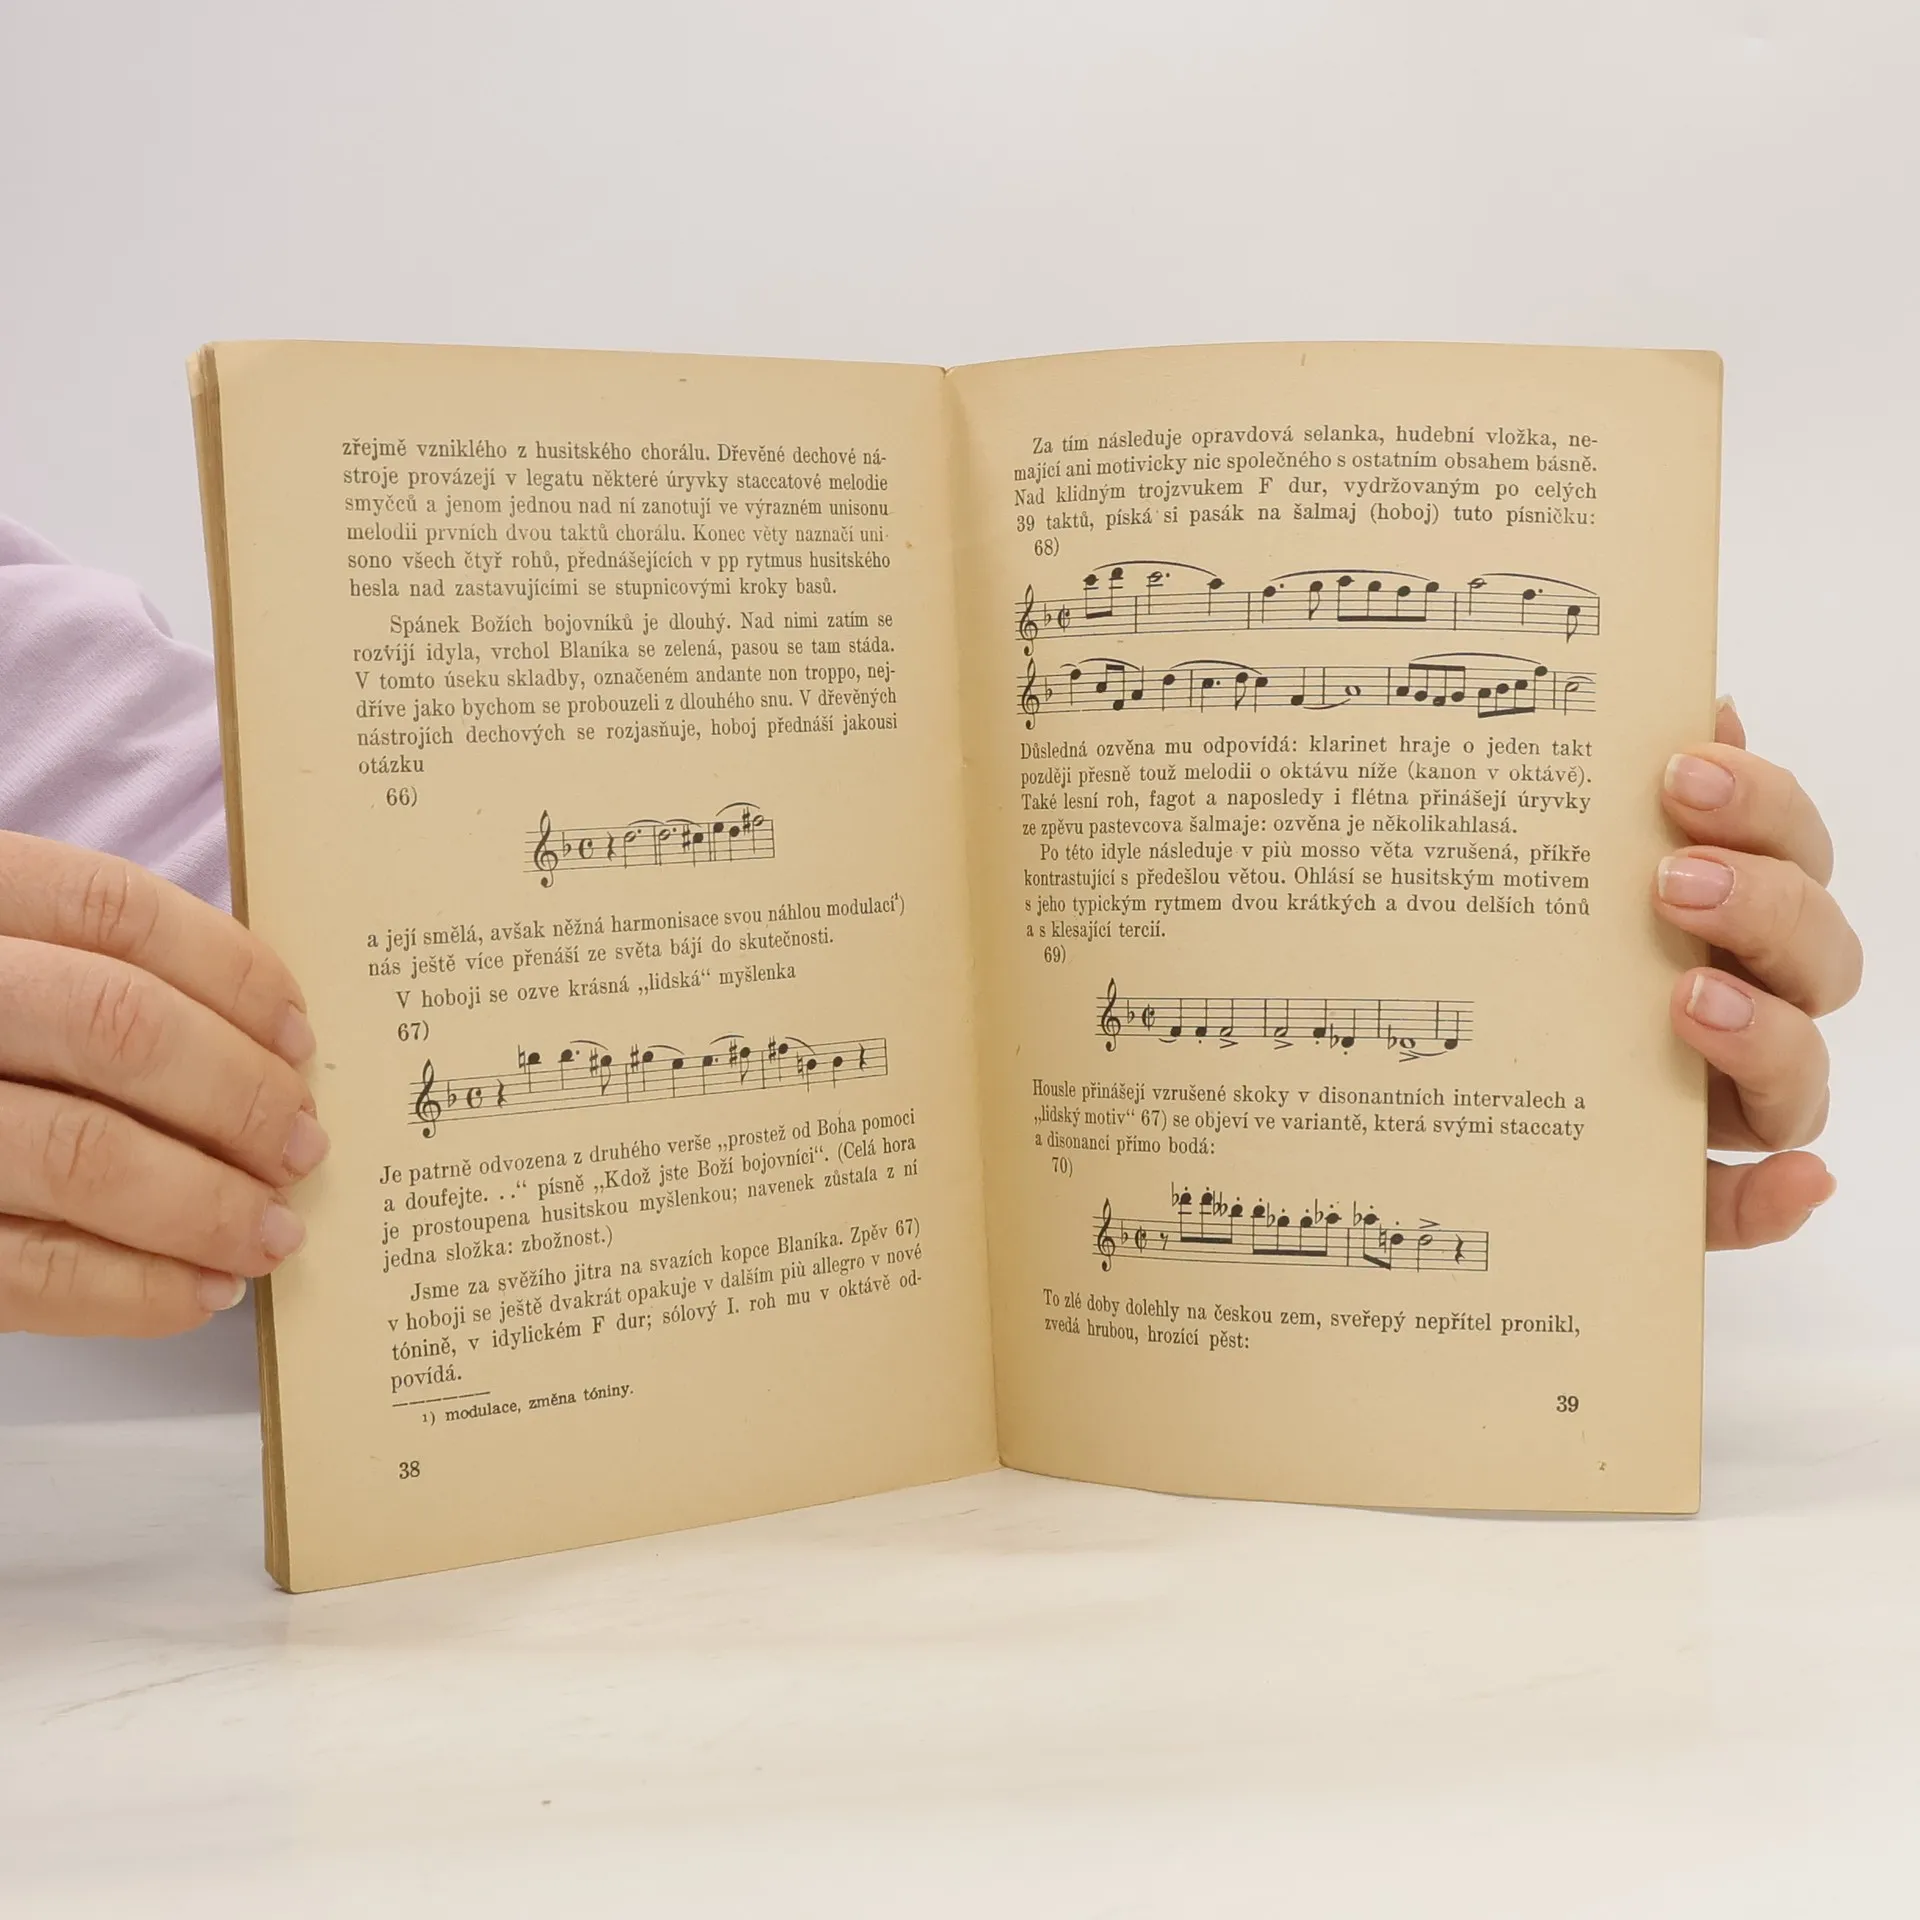 zřejmě vzniklého z husitského chorálu. Dřevěné dechové ná-
stroje provázejí v legatu některé úryvky staccatové melodie
smyčců a jenom jednou nad ní zanotují ve výrazném unisonu
melodii prvních dvou taktů chorálu. Konec věty naznačí uni-
sono všech čtyř rohů, přednášejících v pp rytmus husitského
hesla nad zastavujícími se stupnicovými kroky basů.
Spánek Božích bojovníků je dlouhý. Nad nimi zatím se
rozvíjí idyla, vrchol Blaníka se zelená, pasou se tam stáda.
V tomto úseku skladby, označeném andante non troppo, nej-
dříve jako bychom se probouzeli z dlouhého snu. V dřevěných
nástrojích dechových se rozjasňuje, hoboj přednáší jakousi
otázku
66)
a její smělá, avšak něžná harmonisace svou náhlou modulací¹)
nás ještě více přenáší ze světa bájí do skutečnosti.
V hoboji se ozve krásná „lidská“ myšlenka
67)
Je patrně odvozena z druhého verše „prostež od Boha pomoci
a doufejte. . .“ písně „Kdož jste Boží bojovníci“. (Celá hora
je prostoupena husitskou myšlenkou; navenek zůstala z ní
jedna složka: zbožnost.)
Jsme za svěžího jitra na svazích kopce Blaníka. Zpěv 67)
v hoboji se ještě dvakrát opakuje v dalším più allegro v nové
tónině, v idylickém F dur; sólový I. roh mu v oktávě od-
povídá.
1) modulace, změna tóniny.
38
Za tím následuje opravdová selanka, hudební vložka, ne-
mající ani motivicky nic společného s ostatním obsahem básně.
Nad klidným trojzvukem F dur, vydržovaným po celých
39 taktů, píská si pasák na šalmaj (hoboj) tuto písničku:
68)
Důsledná ozvěna mu odpovídá: klarinet hraje o jeden takt
později přesně touž melodii o oktávu níže (kanon v oktávě).
Také lesní roh, fagot a naposledy i flétna přinášejí úryvky
ze zpěvu pastevcova šalmaje: ozvěna je několikahlasá.
Po této idyle následuje v più mosso věta vzrušená, příkře
kontrastující s předešlou větou. Ohlásí se husitským motivem
s jeho typickým rytmem dvou krátkých a dvou delších tónů
a s klesající tercií.
69)
Housle přinášejí vzrušené skoky v disonantních intervalech a
„lidský motiv“ 67) se objeví ve variantě, která svými staccaty
a disonancí přímo bodá:
70)
To zlé doby dolehly na českou zem, sveřepý nepřítel pronikl,
zvedá hrubou, hrozící pěst:
39